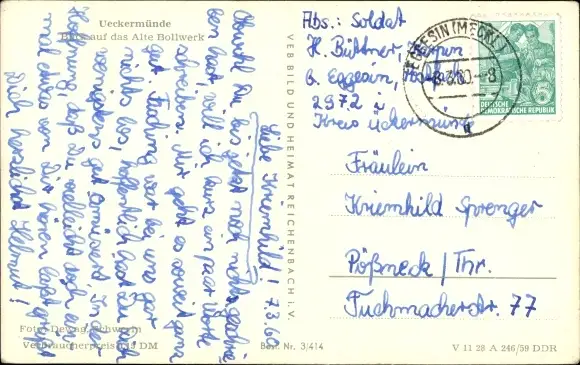 Ueckermünde
Blick auf das Alte Bollwerk
Liebe Kriemhild! 7.3.60
Obwohl Du bis jetzt noch nicht geschrie-
ben hast, will ich kurz ein paar Worte
schreiben. Mir geht es soweit ganz
gut. Fasching war bei uns gar
nichts los, hoffentlich hast du dich
wenigstens gut amüsiert. In der
Hoffnung, daß Du vielleicht doch ein-
mal etwas von Dir hören läßt grüßt
Dich herzlichst Helmut!
Foto: Dewag, Schwerin
Verbraucherpreis DM
VEB BILD UND HEIMAT REICHENBACH i. V.
Best. Nr. 3/414
Abs.: Soldat
H. Büttner,
b. Eggesin,
2972
Kreis Ückermünde
EGGESIN (MECKL)
.3.60.-8
a
DEUTSCHE
DEMOKRATISCHE REPUBLIK
5
Fräulein
Kriemhild Sprenger
Pößneck/Thr.
Tuchmacherstr. 77
V 11 28 A 246/59 DDR